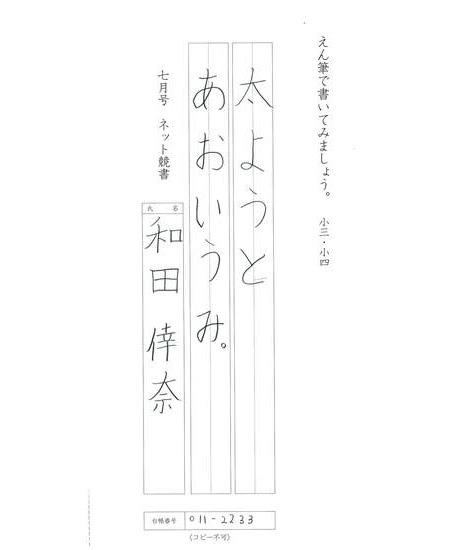 えん筆で書いてみましょう。 小三・小四
太ようと
あおいうみ。
七月号 ネット競書
氏名
和田 倖奈
台帳番号 011-2233
(コピー不可)